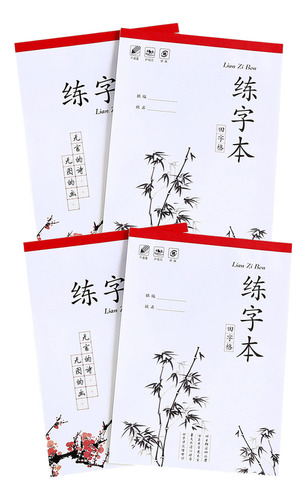 Lian
练字
无言的诗
无图的画
Lian Zi Ben
练字本
田字格
班级
姓名
练字
无言的诗
无图的画
Lian Zi Ben
练字本
田字格
班级
姓名